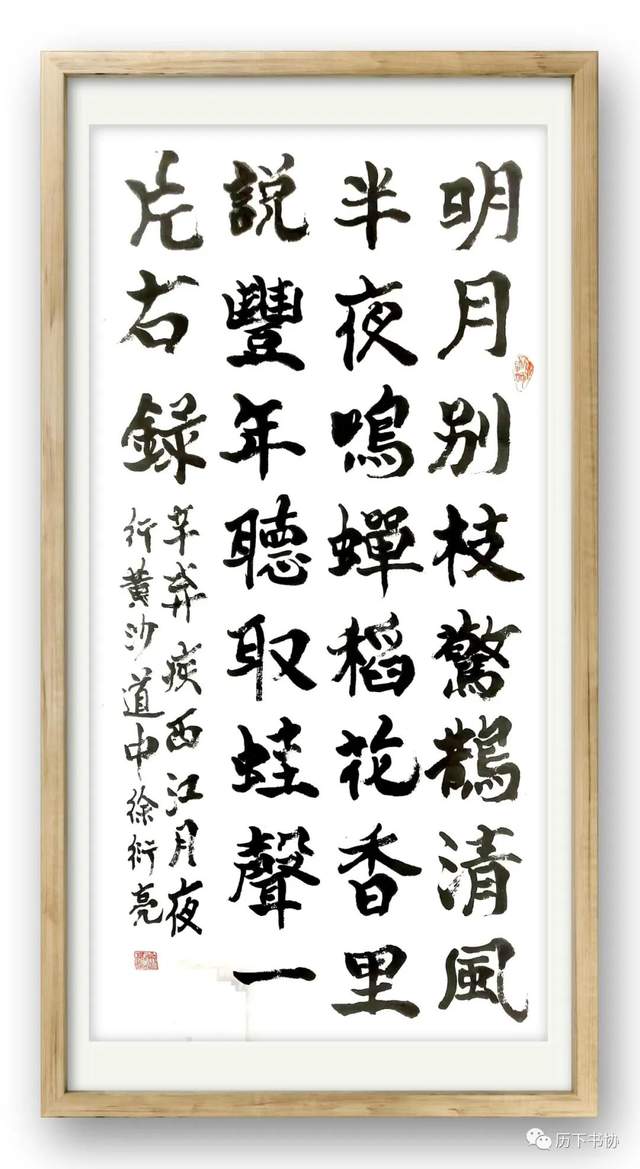 明月别枝驚鵲清風
半夜鳴蟬稻花香里
説豐年聽取蛙聲一
片右錄
辛弃疾西江月夜
行黄沙道中徐衍亮
历下书协